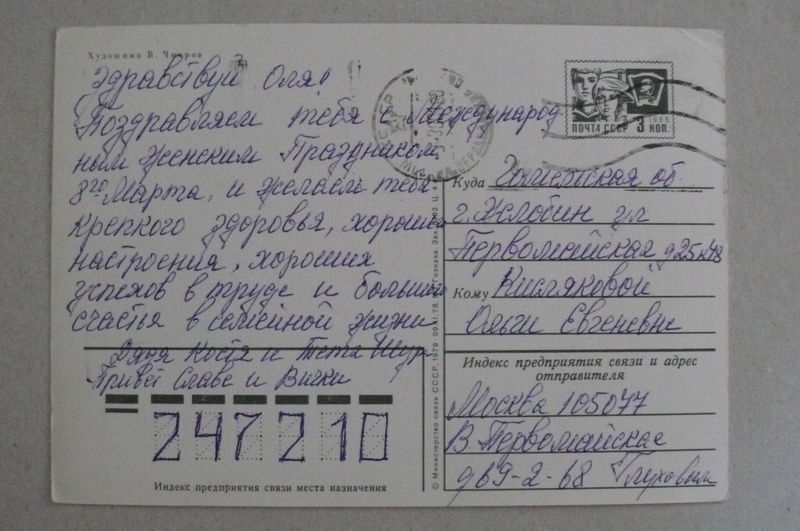 Художник В. Чмаров
Здравствуй Оля!
Поздравляем тебя с Международ
ным Женским Праздником
8го Марта, и желаем тебе
крепкого здоровья, хорошего
настроения, хороших
успехов в труде и большого
счастья в семейной жизни
Дядя Костя и Тета Шур
Привет Славе и Вички
247210
Индекс предприятия связи места назначения
© Министерство связи СССР, 1979
ПОЧТА СССР 3 КОП.
1966
Куда Гомельская об
г. Жлобин ул
Первомайская д25к48
Кому Кисляковой
Ольги Евгеневне
Индекс предприятия связи и адрес
отправителя
Москва 105077
В. Первомайская
д69-2-68 Глуховым